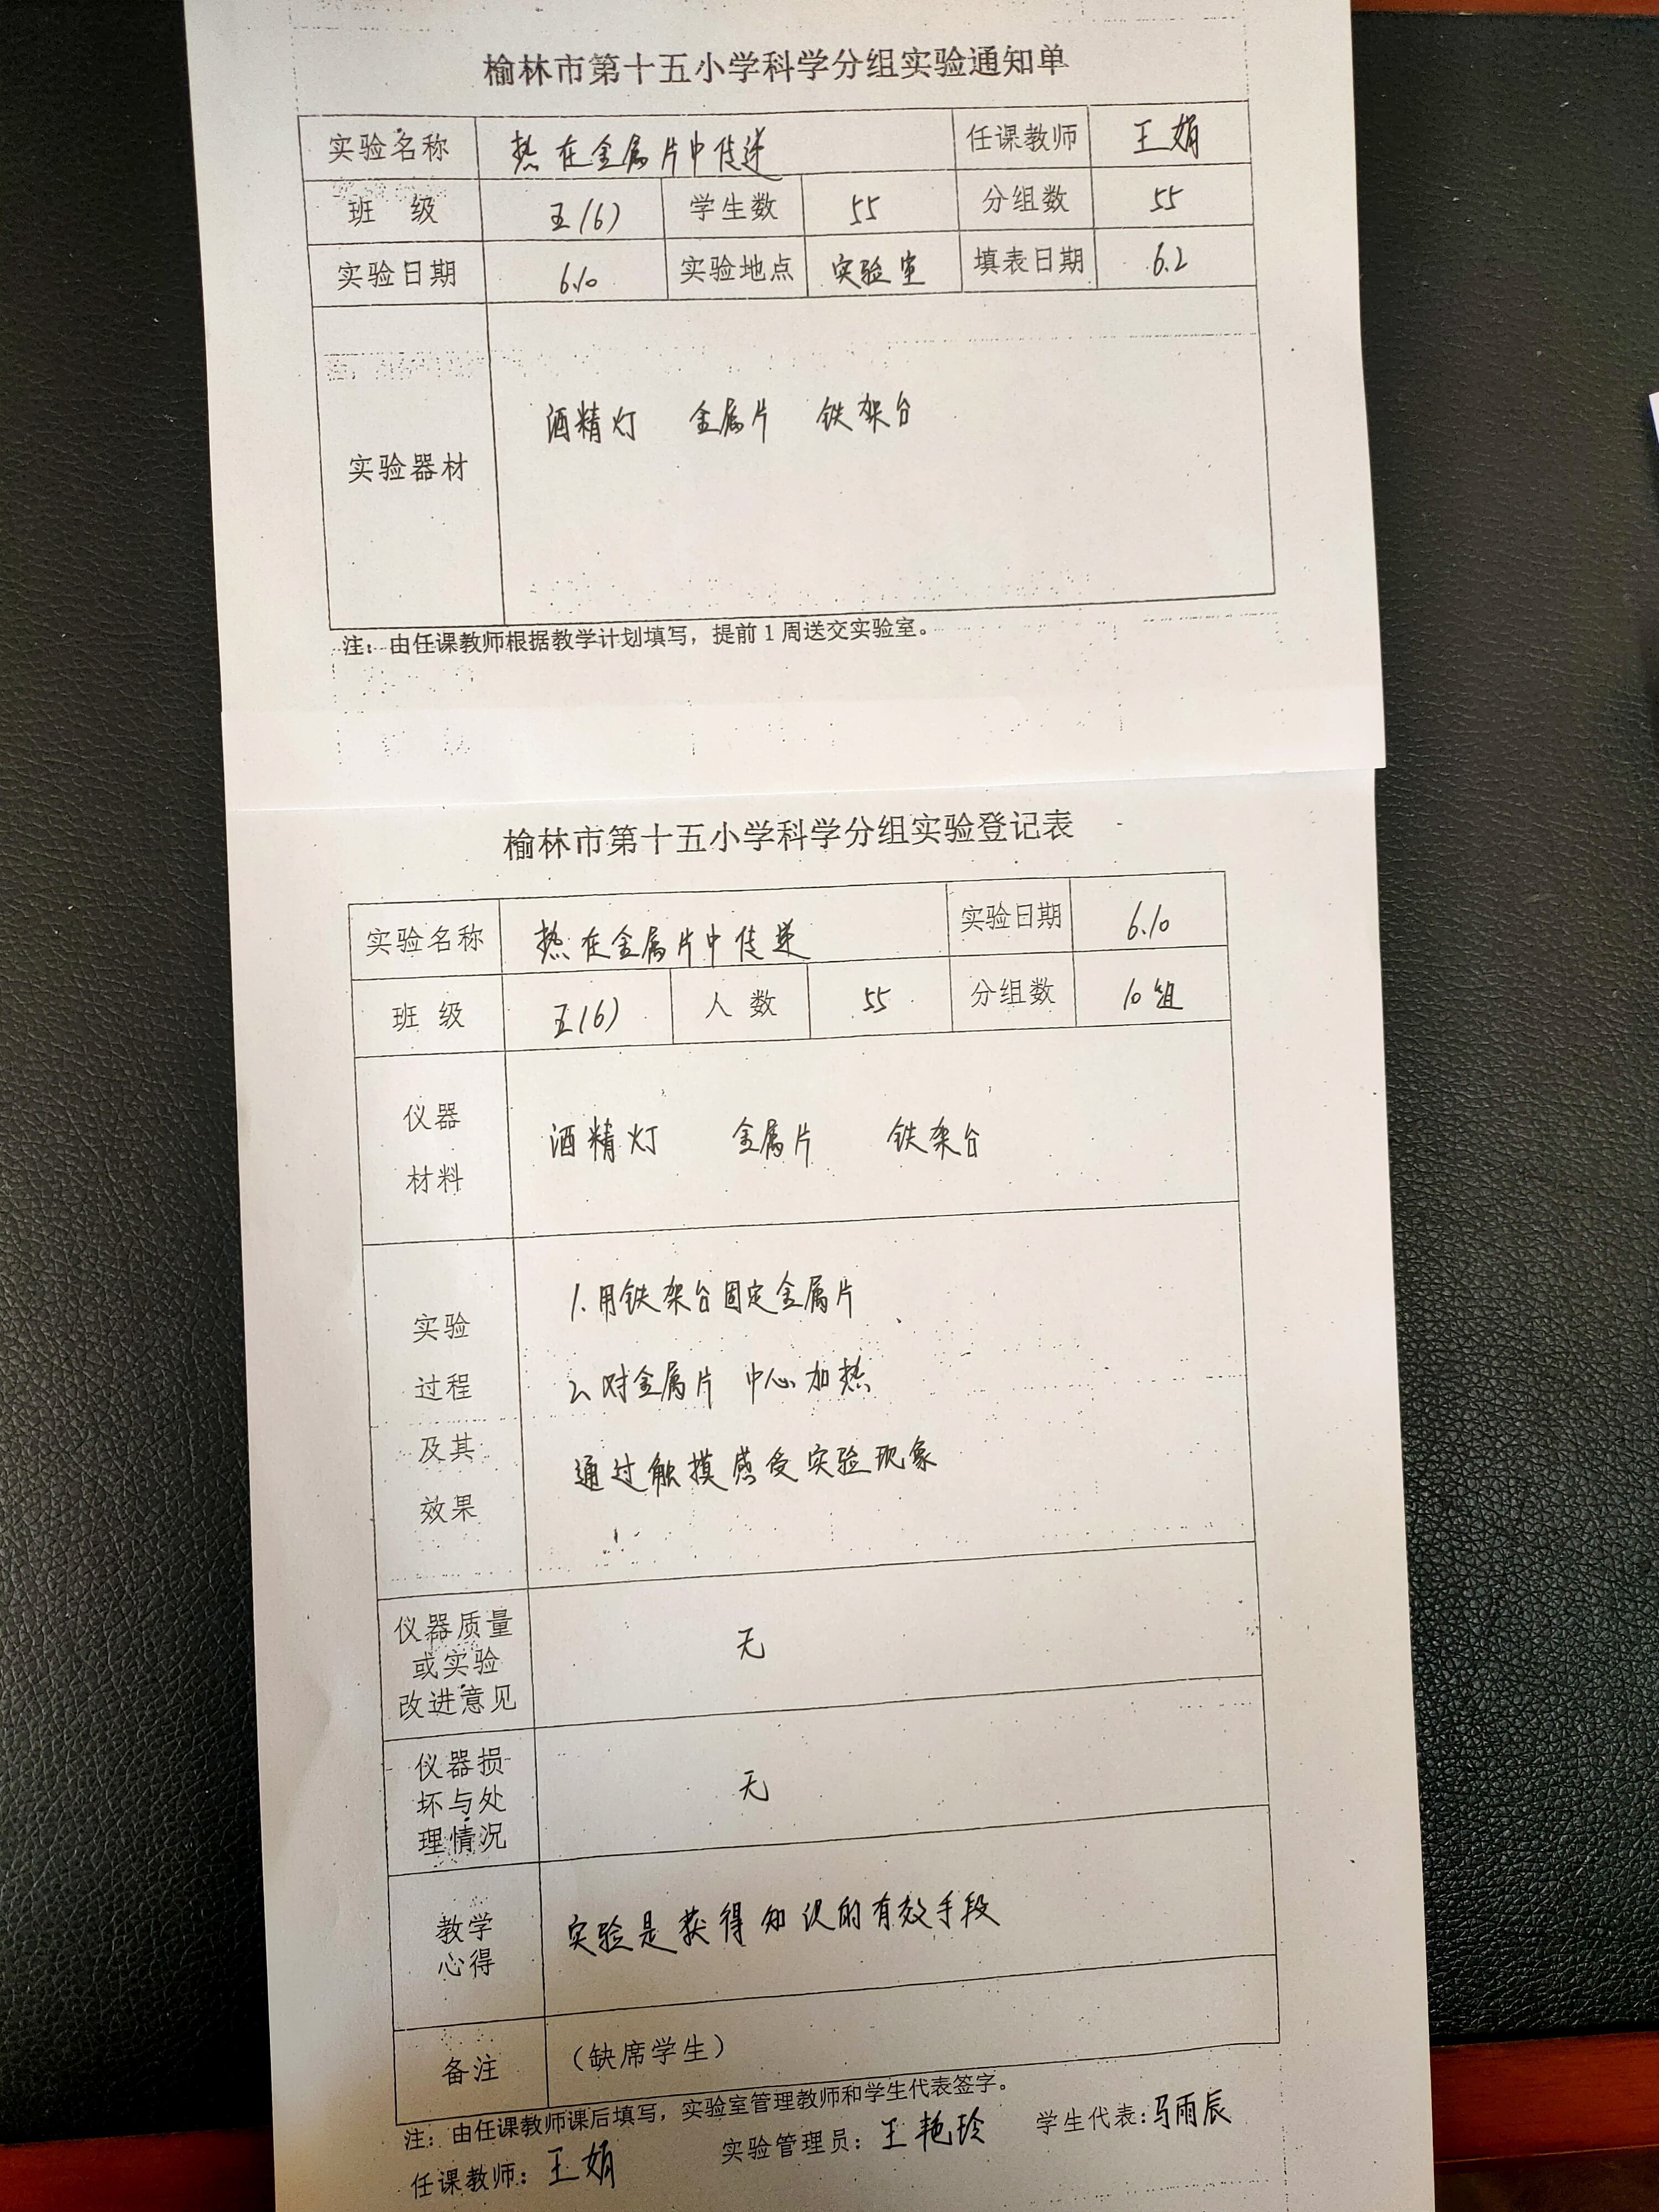 榆林市第十五小学科学分组实验通知单
实验名称 热在金属片中传递 任课教师 王娟
班 级 五(6) 学生数 55 分组数 55
实验日期 6.10 实验地点 实验室 填表日期 6.2
实验器材 酒精灯 金属片 铁架台
注:由任课教师根据教学计划填写,提前1周送交实验室。
榆林市第十五小学科学分组实验登记表
实验名称 热在金属片中传递 实验日期 6.10
班 级 五(6) 人 数 55 分组数 10组
仪器
材料
酒精灯 金属片 铁架台
实验
过程
及其
效果
1.用铁架台固定金属片
2.对金属片中心加热
通过触摸感受实验现象
仪器质量
或实验
改进意见
无
仪器损
坏与处
理情况
无
教学
心得
实验是获得知识的有效手段
备注 (缺席学生)
注:由任课教师课后填写,实验室管理教师和学生代表签字。
任课教师:王娟 实验管理员:王艳玲 学生代表:马雨辰